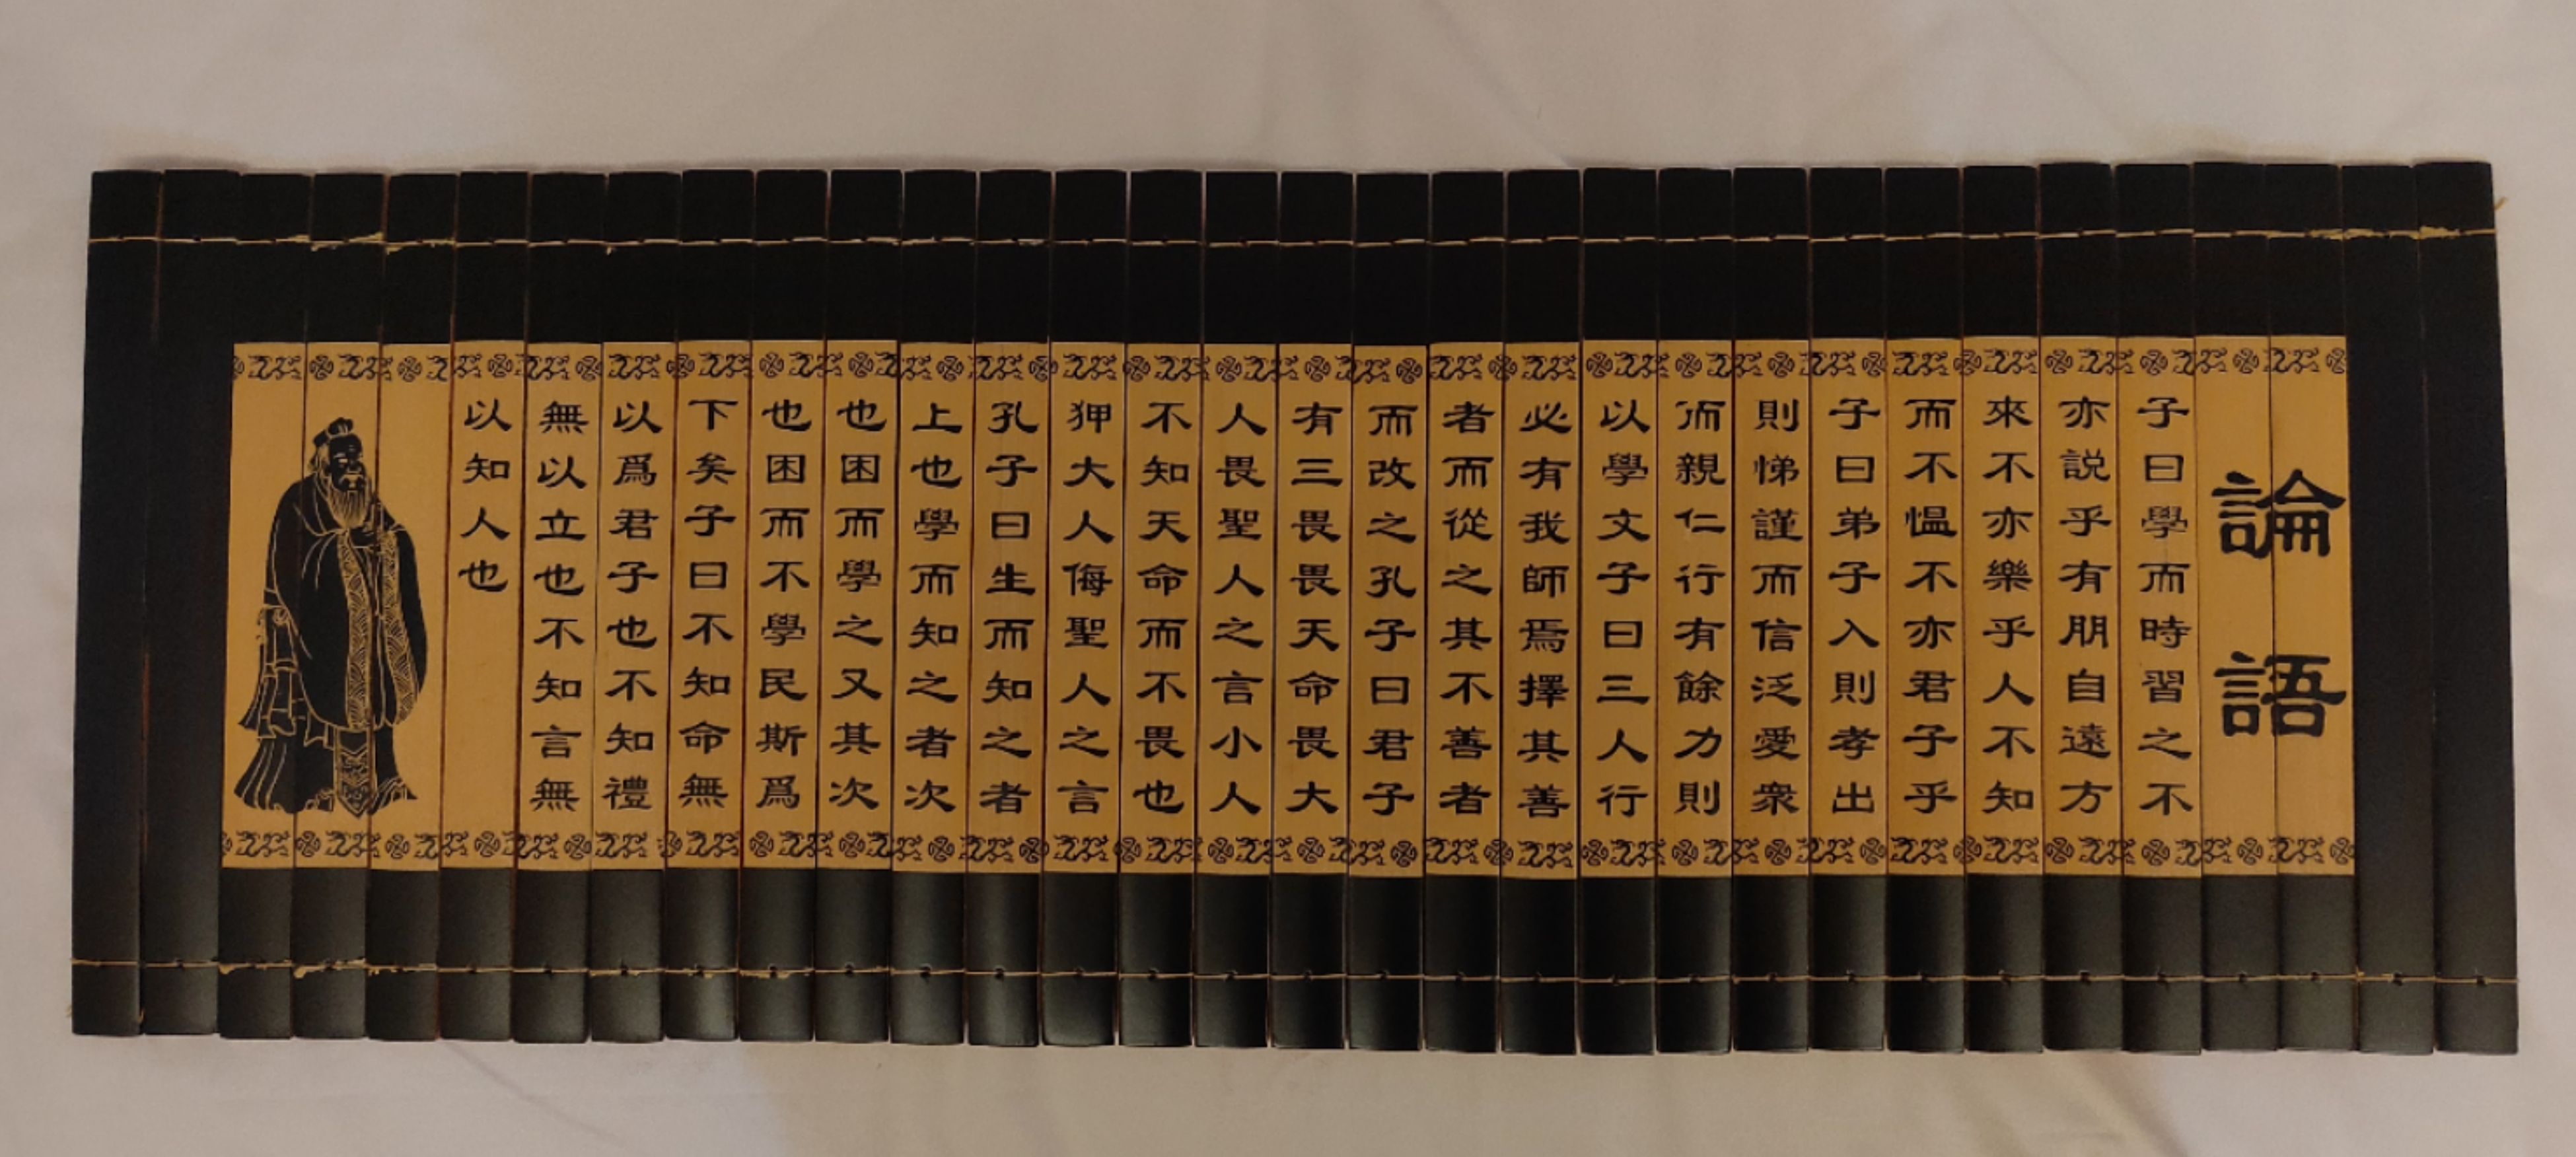 論語
子曰學而時習之不
亦説乎有朋自遠方
來不亦樂乎人不知
而不愠不亦君子乎
子曰弟子入則孝出
則悌謹而信泛愛衆
而親仁行有餘力則
以學文子曰三人行
必有我師焉擇其善
者而從之其不善者
而改之孔子曰君子
有三畏畏天命畏大
人畏聖人之言小人
不知天命而不畏也
狎大人侮聖人之言
孔子曰生而知之者
上也學而知之者次
也困而學之又其次
也困而不學民斯爲
下矣子曰不知命無
以爲君子也不知禮
無以立也不知言無
以知人也